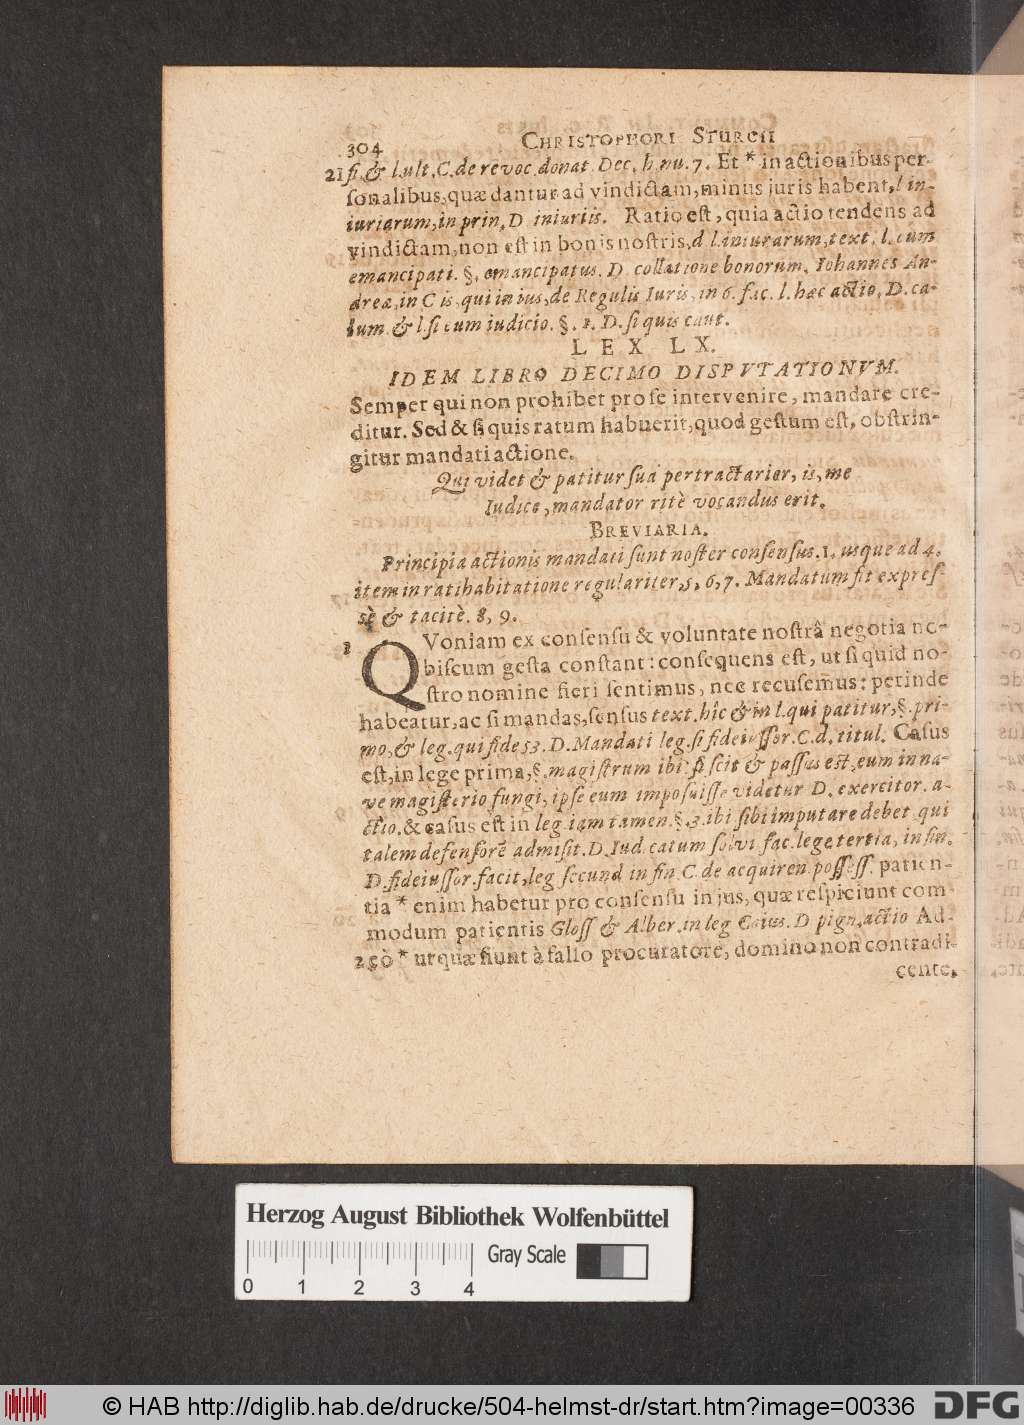 304 CHRISTOPHORI STURCII
21 si, & l.ult. C. de revoc. donat. Dec. h. nu. 7. Et * in actionibus per-
sonalibus, quæ dantur ad vindictam, minus juris habent, l in-
iuriarum, in prin. D iniuriis. Ratio est, quia actio tendens ad
vindictam, non est in bonis nostris, d l. iniurarum, text. l. cum
emancipati. §. emancipatus. D. collatione bonorum. Iohannes An-
dreæ, in C is, qui in ius, de Regulis Iuris, in 6. fac. l. hæc actio. D. ca-
lum. & l. si cum iudicio. §. 1. D. si quis caut.
LEX LX.
IDEM LIBRO DECIMO DISPVTATIONVM.
Semper qui non prohibet pro se intervenire, mandare cre-
ditur. Sed & si quis ratum habuerit, quod gestum est, obstrin-
gitur mandati actione.
Qui videt & patitur sua pertractarier, is, me
Iudice, mandator ritè vocandus erit.
BREVIARIA.
Principia actionis mandati sunt noster consensus. 1. usque ad 4.
item in ratihabitatione regulariter, 5, 6, 7. Mandatum fit expres-
sè & tacitè. 8, 9.
1 QVoniam ex consensu & voluntate nostrâ negotia no-
biscum gesta constant: consequens est, ut si quid no-
stro nomine fieri sentimus, nec recusem9: perinde
habeatur, ac si mandas, sensus text. hîc & in l. qui patitur, §. pri-
mo, & leg. qui fide 53. D. Mandati leg. si fideiussor. C. d. titul. Casus
est, in lege prima, §. magistrum ibi: si scit & passus est, eum in na-
ve magisterio fungi, ipse eum imposuisse videtur D. exercitor. a-
ctio. & casus est in leg. iam tamen. §. 3. ibi sibi imputare debet, qui
talem defensorē admisit. D. Iud catum solvi fac. lege tertia, in fin.
D. fideiussor. facit, leg secund in fin. C. de acquiren. possess. patien-
tia * enim habetur pro consensu in jus, quæ respiciunt com
modum patientis Gloss & Alber. in leg Caius. D pign. actio Ad-
2 eò * ut quæ fiunt à falso procuratore, domino non contradi-
cente,
Herzog August Bibliothek Wolfenbüttel
Gray Scale
0 1 2 3 4
© HAB http://diglib.hab.de/drucke/504-helmst-dr/start.htm?image=00336
DFG